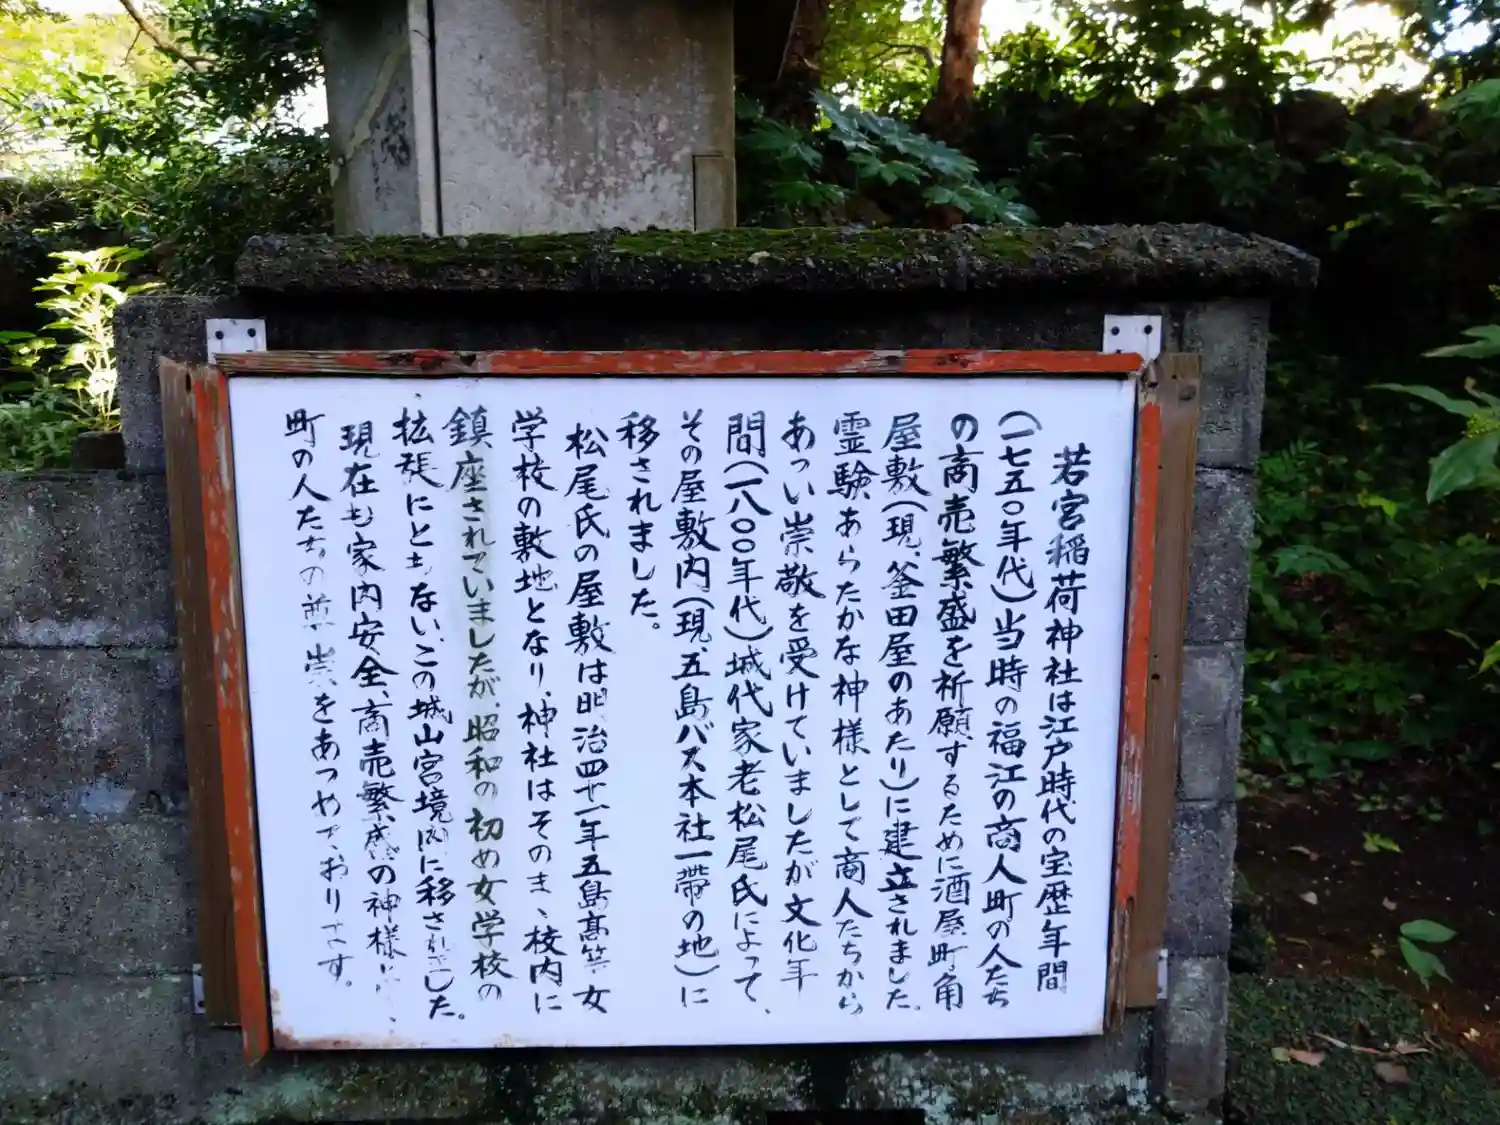 若宮稲荷神社は江戸時代の宝歴年間
(一七五〇年代)当時の福江の商人町の人たち
の商売繁盛を祈願するために酒屋町角
屋敷(現、釜田屋のあたり)に建立されました。
霊験あらたかな神様として商人たちから
あつい崇敬を受けていましたが文化年
間(一八〇〇年代)城代家老松尾氏によって、
その屋敷内(現、五島バス本社一帯の地)に
移されました。
松尾氏の屋敷は明治四十一年五島高等女
学校の敷地となり、神社はそのまゝ校内に
鎮座されていましたが、昭和の初め女学校の
拡張にともない、この城山宮境内に移されました。
現在も家内安全、商売繁盛の神様に、
町の人たちの尊崇をあつめております。